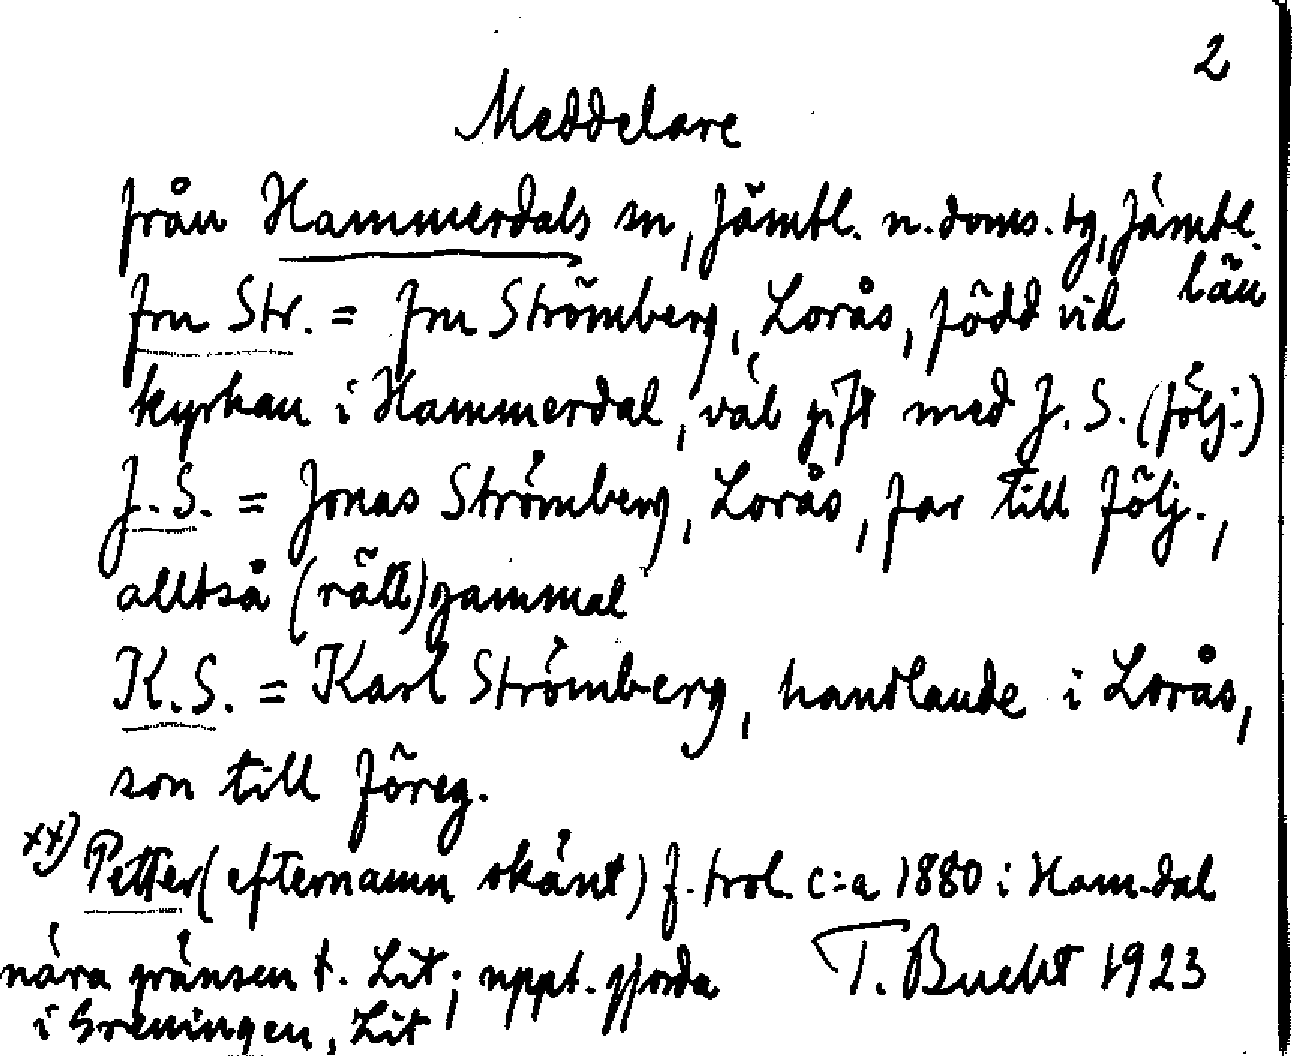 2
Meddelare
från Hammerdals sn, Jämtl. n. doms. tg, Jämtl.
län
fru Str. = fru Strömberg, Lorås, född vid
kyrkan i Hammerdal, väl gift med J. S. (följ.)
J. S. = Jonas Strömberg, Lorås, far till följ.,
alltså (rätt)gammal
K. S. = Karl Strömberg, handlande i Lorås,
son till föreg.
xx) Petter (efternamn okänt) f. trol. c:a 1880 i Ham-dal
nära gränsen t. Lit; uppt. gjorda
T. Bucht 1923
i Greningen, Lit